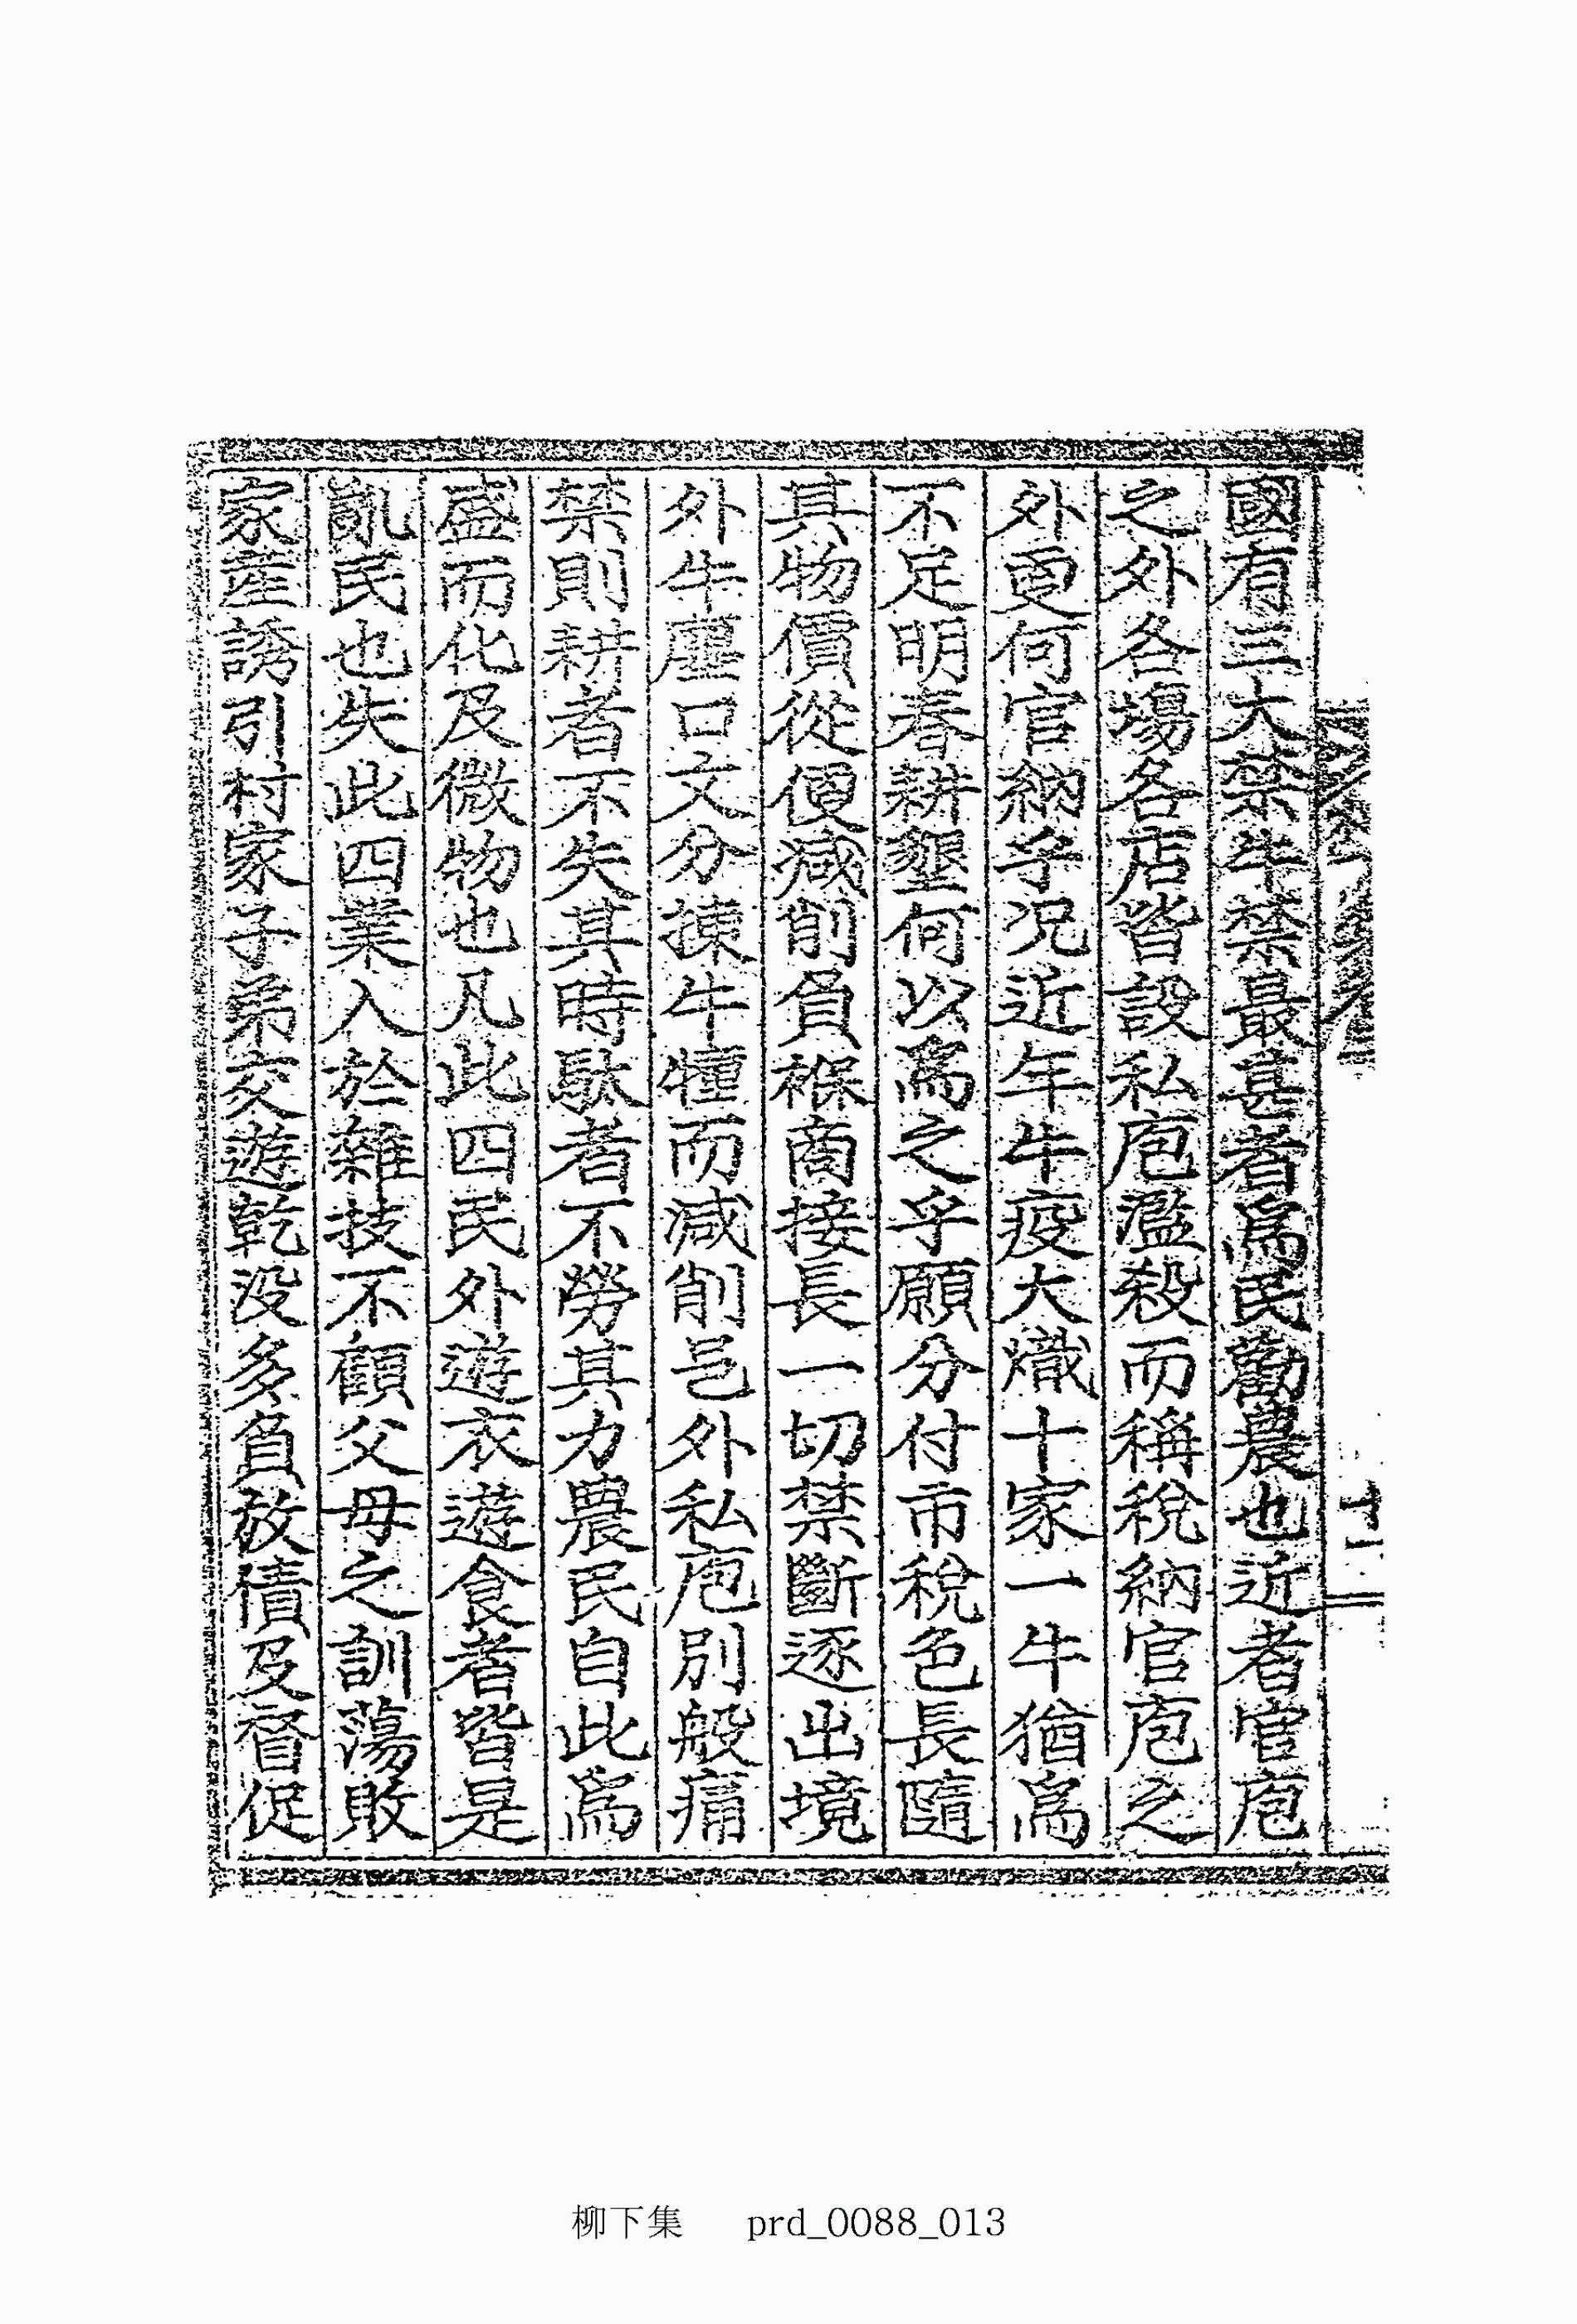 國有三大禁牛禁最甚者爲民勸農也近者官庖
之外各場各店皆設私庖濫殺而稱稅納官庖之
外更何官納乎況近年牛疫大熾十家一牛猶爲
不足明春耕墾何以爲之乎願分付市稅色長隨
其物價從便減削負褓商接長一切禁斷逐出境
外牛廛口文分揀牛犝而減削邑外私庖別般痛
禁則耕者不失其時馱者不勞其力農民自此爲
盛而化及微物也凡此四民外遊衣遊食者皆是
亂民也失此四業入於雜技不顧父母之訓蕩敗
家産誘引村家子弟交遊乾沒多負放債及督促
十二
柳下集 prd_0088_013